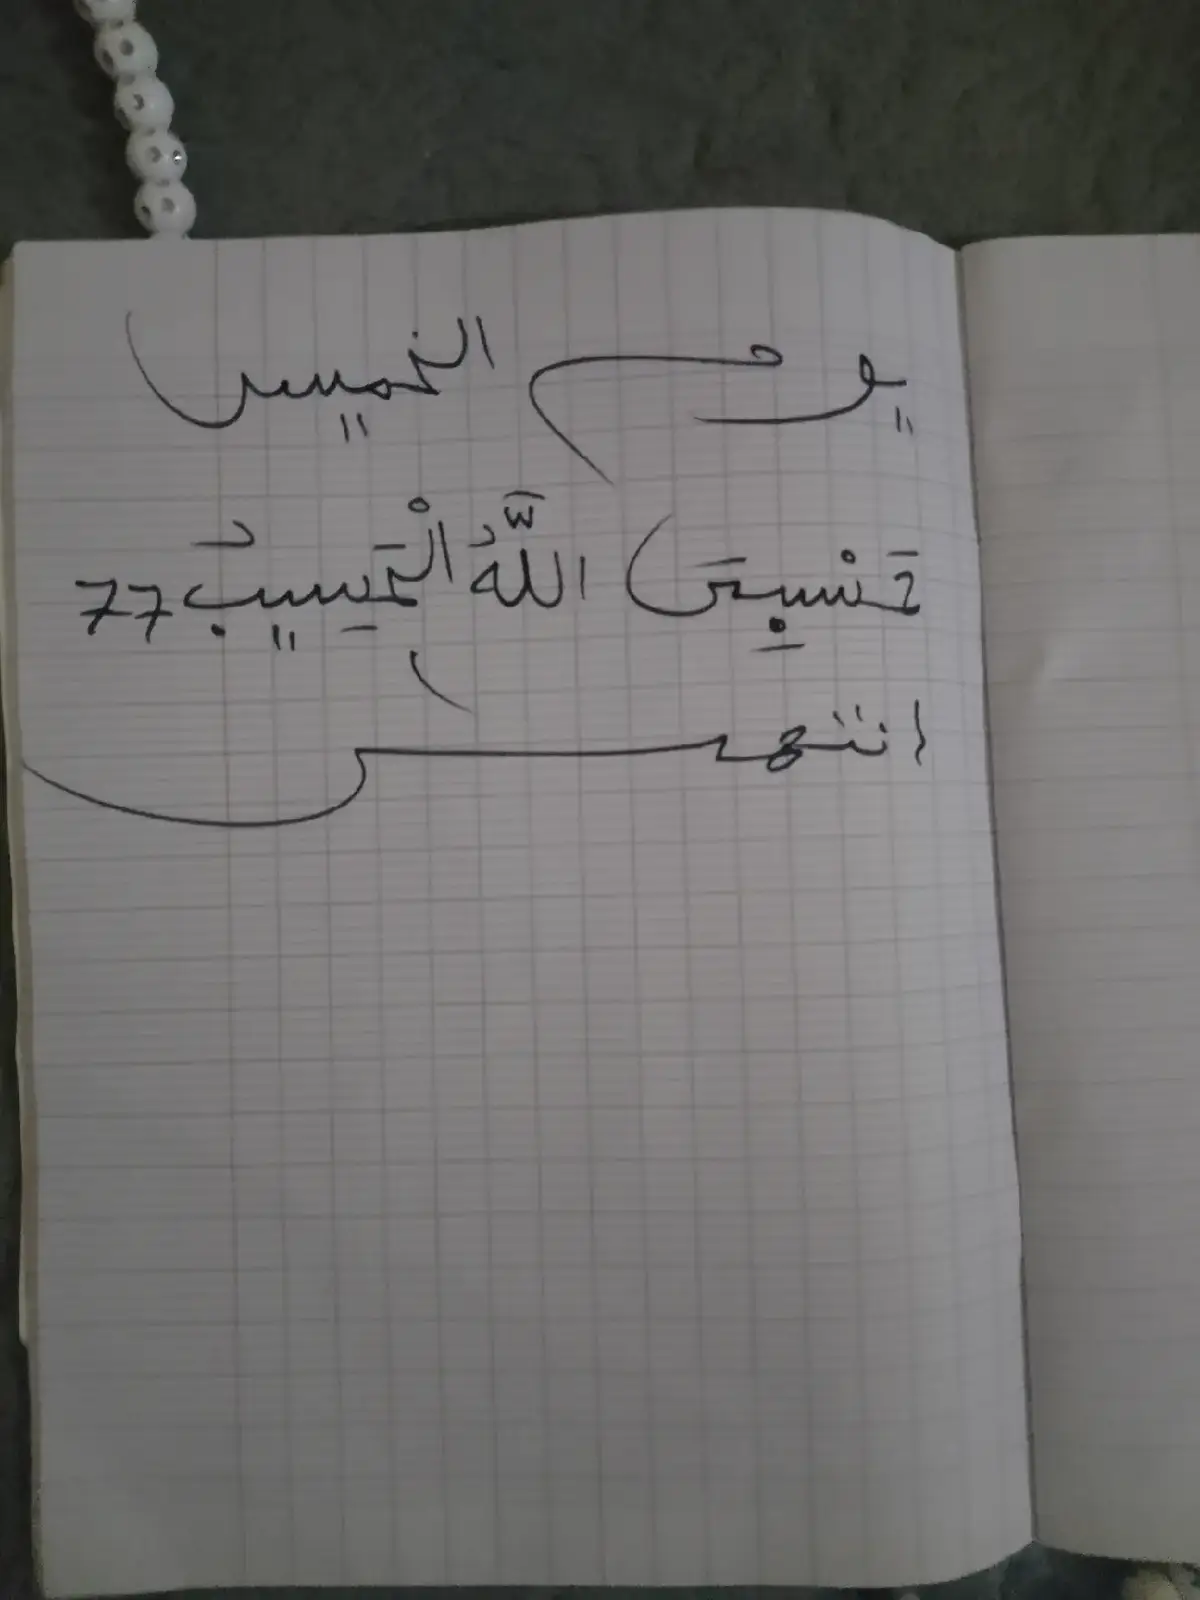 يوم الخميس
حَسْبِىَ اللَّهُ الْحَسِيبُ 77
انتهى